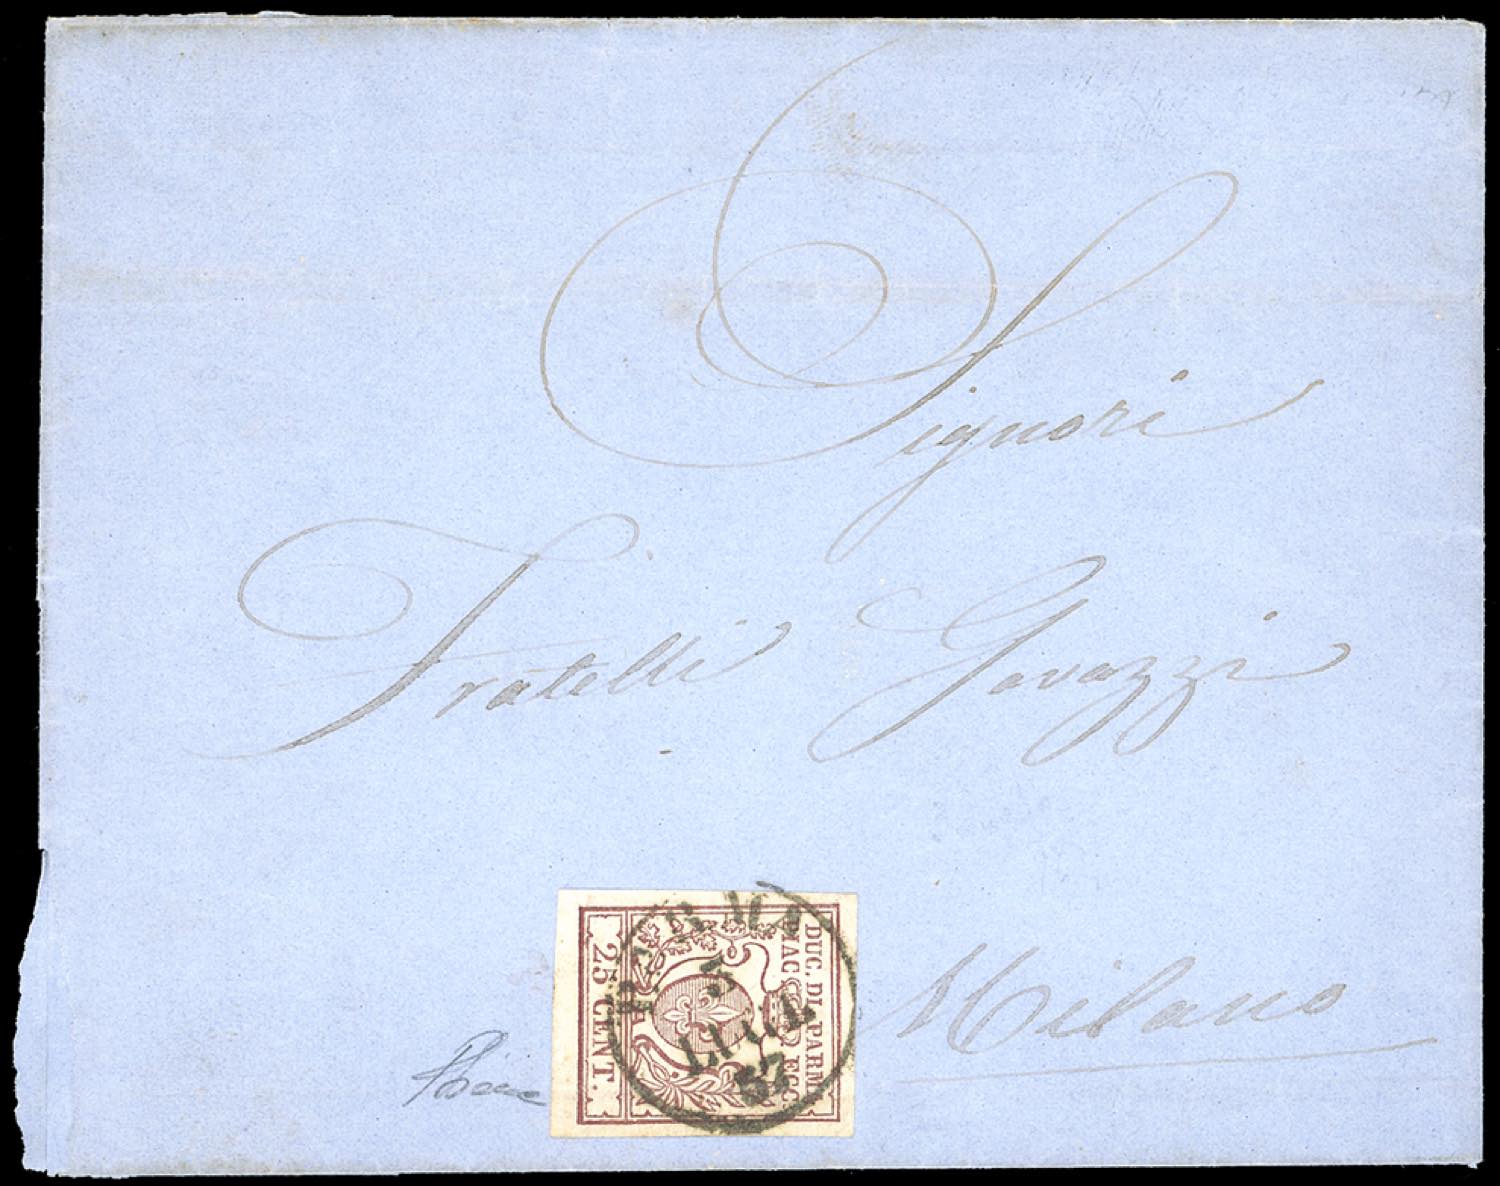 Signori
Fratelli Gavazzi
Milano
DUC. DI PARMA
PIAC. ECC.
25 CENT.
PARMA
5
LUGL
57